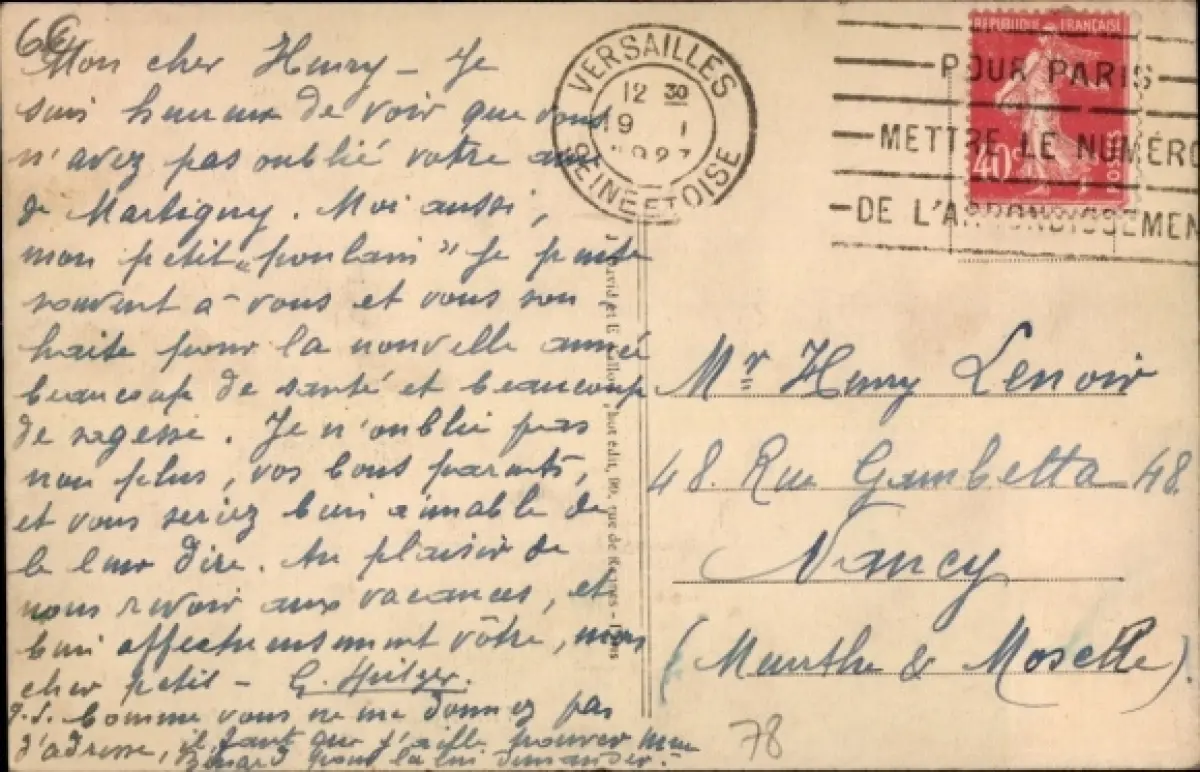 Mon cher Henry – Je
suis heureux de voir que vous
n'avez pas oublié votre ami
de Martigny. Moi aussi,
mon petit „poulain" Je pense
souvent à vous et vous sou-
haite pour la nouvelle année
beaucoup de santé et beaucoup
de sagesse. Je n'oublie pas
non plus, vos bons parents,
et vous seriez bien aimable de
le leur dire. Au plaisir de
nous revoir aux vacances, et
bien affectueusement vôtre, mon
cher petit –
P.S. Comme vous ne me donnez pas
d'adresse, il faut que j'aille trouver Mme
pour la lui demander.
VERSAILLES
12 30
19 I
SEINE ET OISE
REPUBLIQUE FRANÇAISE
40c
POSTES
POUR PARIS
METTRE LE NUMÉRO
DE L'ARRONDISSEMEN
édit, 99, rue de Rennes - Paris
Mr Henry Lenoir
48. Rue Gambetta 48.
Nancy
(Meurthe & Moselle).
78